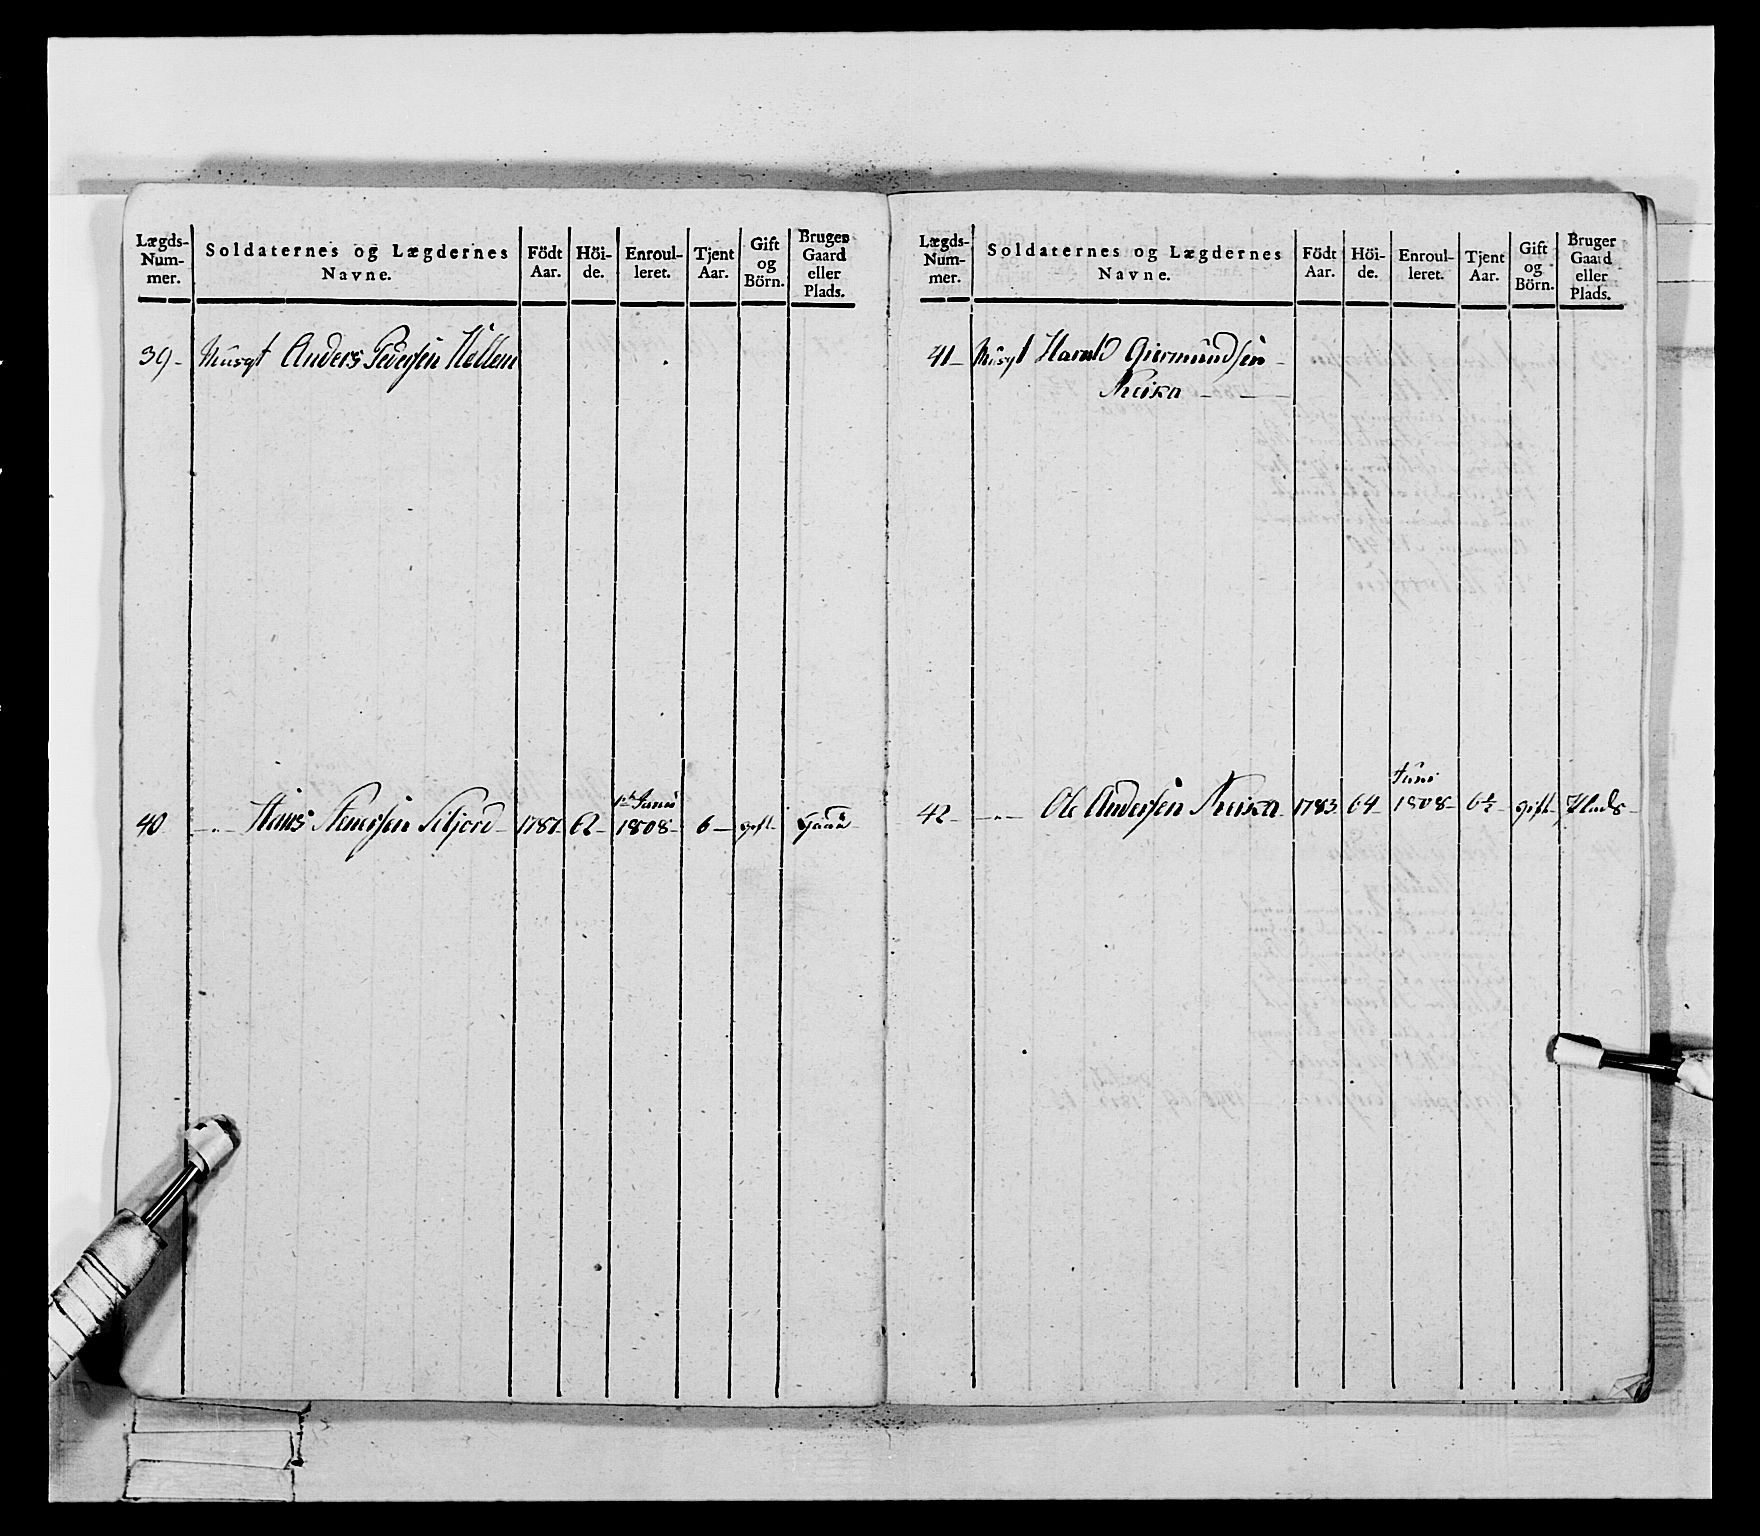 Lægds-Num-mer. Soldaternes og Lægdernes Navne. Födt Aar. Höi-de. Enroul-leret. Tjent Aar. Gift og Börn. Bruger Gaard eller Plads.
39- Musqt Anders Pedersen Hellem
1ste Junii
40 -„- Hans Stenersen Siljord 1781 62- 1808- 6- gift- Gaard
Lægds-Num-mer. Soldaternes og Lægdernes Navne. Födt Aar. Höi-de. Enroul-leret. Tjent Aar. Gift og Börn. Bruger Gaard eller Plads.
41- Musqt Harald Giermundsen-
Juni
42- -„- Ole Andersen 1783 64- 1808- 6½- gift- Plads-